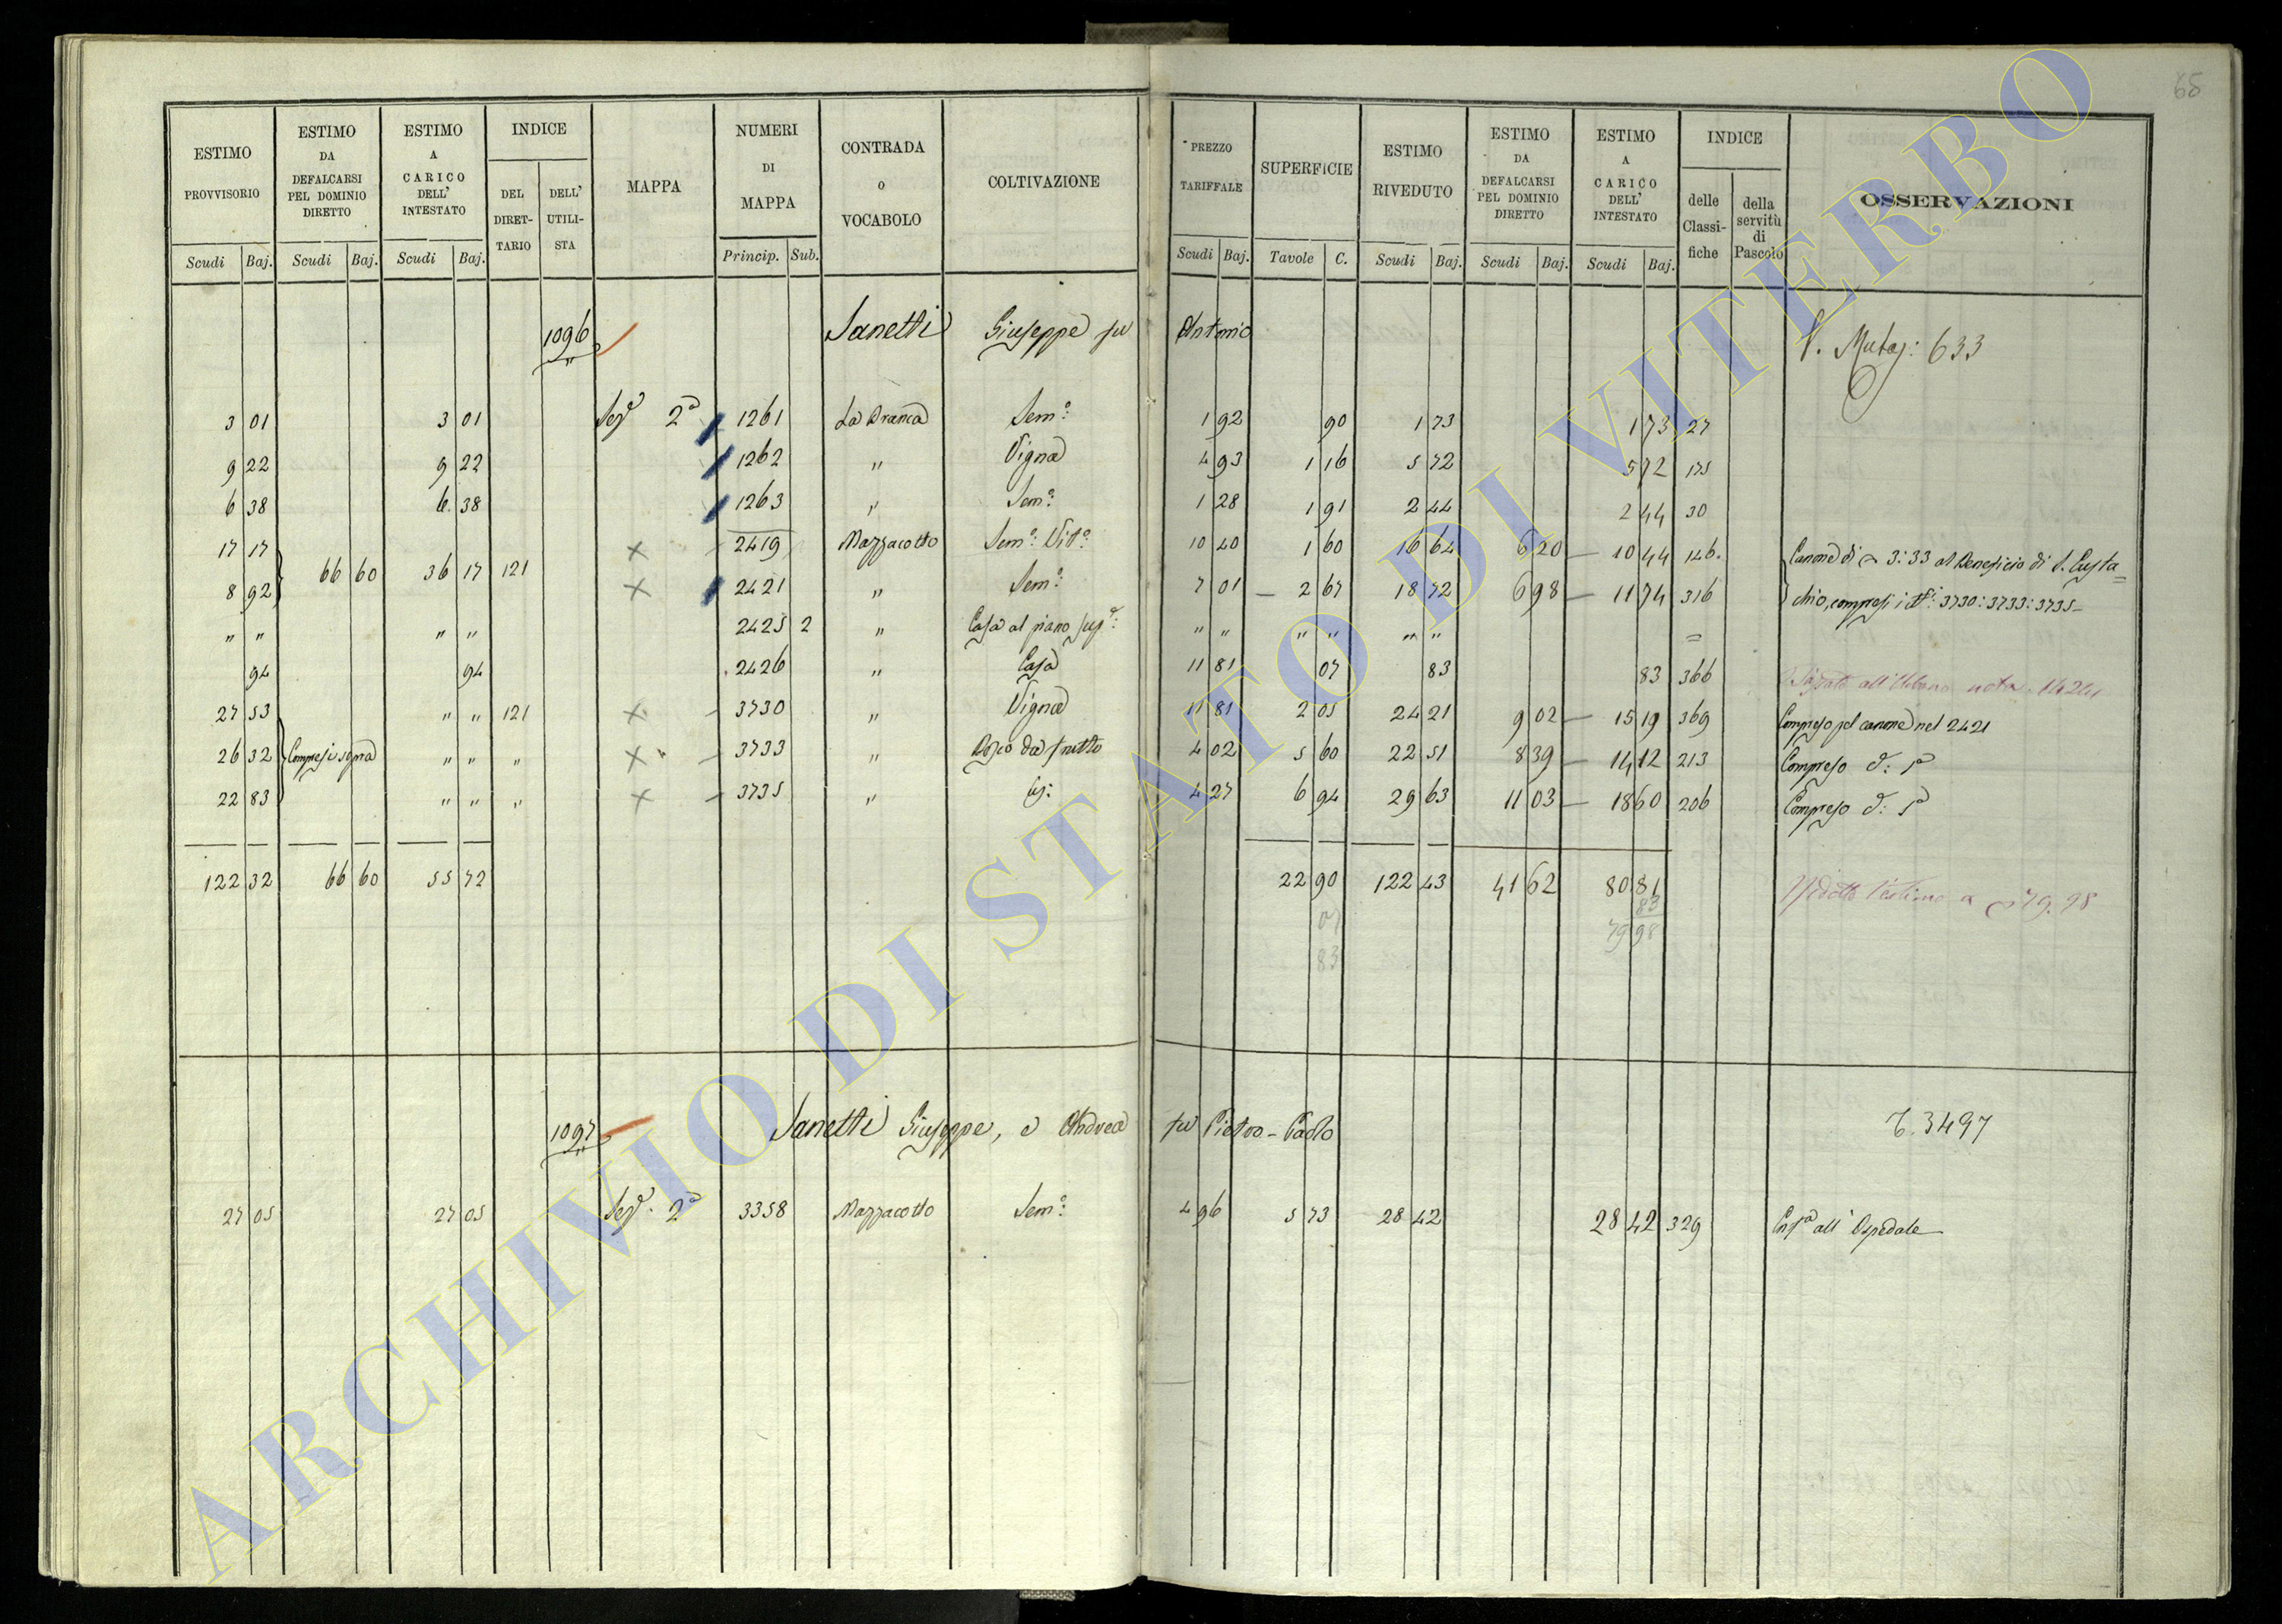 65
ESTIMO PROVVISORIO | ESTIMO DA DEFALCARSI PEL DOMINIO DIRETTO | ESTIMO A CARICO DELL' INTESTATO | INDICE | MAPPA | NUMERI DI MAPPA | CONTRADA O VOCABOLO | COLTIVAZIONE | PREZZO TARIFFALE | SUPERFICIE | ESTIMO RIVEDUTO | ESTIMO DA DEFALCARSI PEL DOMINIO DIRETTO | ESTIMO A CARICO DELL' INTESTATO | INDICE | OSSERVAZIONI
DEL DIRETTARIO | DELL' UTILISTA | delle Classifiche | della servitù di Pascolo
Scudi | Baj. | Scudi | Baj. | Scudi | Baj. | Princip. | Sub. | Scudi | Baj. | Tavole | C. | Scudi | Baj. | Scudi | Baj. | Scudi | Baj.
1096 Sanetti Giuseppe fu Antonio V. Mutaz: 633
3 01 3 01 Sezᵉ 2ᵃ 1261 La Branca Semᵒ: 1 92 90 1 73 1 73 27
9 22 9 22 1262 " Vigna 4 93 1 16 5 72 5 72 175
6 38 6. 38 1263 " Semᵒ: 1 28 1 91 2 44 2 44 30
17 17 2419 Mazzacotto Semᵒ: Vitᵒ: 10 40 1 60 16 64 6 20 10 44 146. Canone di 3:33 al Beneficio di S. Eusta=
66 60 36 17 121
8 92 2421 " Semᵒ: 7 01 2 67 18 72 6 98 11 74 316 chio, compresi i Nⁱ: 3730: 3733: 3735
" " " " 2425 2 " Casa al piano supᵉ: " " " " " " =
94 94 2426 " Casa 11 81 07 83 83 366 all'Urbano nota
27 53 " " 121 3730 " Vigna 11 81 2 05 24 21 9 02 15 19 369 Compreso pel canone nel 2421
26 32 Compresi sopra " " " 3733 " Bosco da frutto 4 02 5 60 22 51 8 39 14 12 213 Compreso c: sᵃ
22 83 " " " 3735 " 4 27 6 94 29 63 11 03 18 60 206 Compreso c: sᵃ
122 32 66 60 55 72 22 90 122 43 41 62 80 81 Ridotto l'estimo a 79.98
07 83
83 79 98
1097 Sanetti Giuseppe, e Andrea fu Pietro-Paolo 3497
27 05 27 05 Sezᵉ. 2ᵃ 3358 Mazzacotto Semᵒ: 4 96 5 73 28 42 28 42 329 all'Ospedale
ARCHIVIO DI STATO DI VITERBO